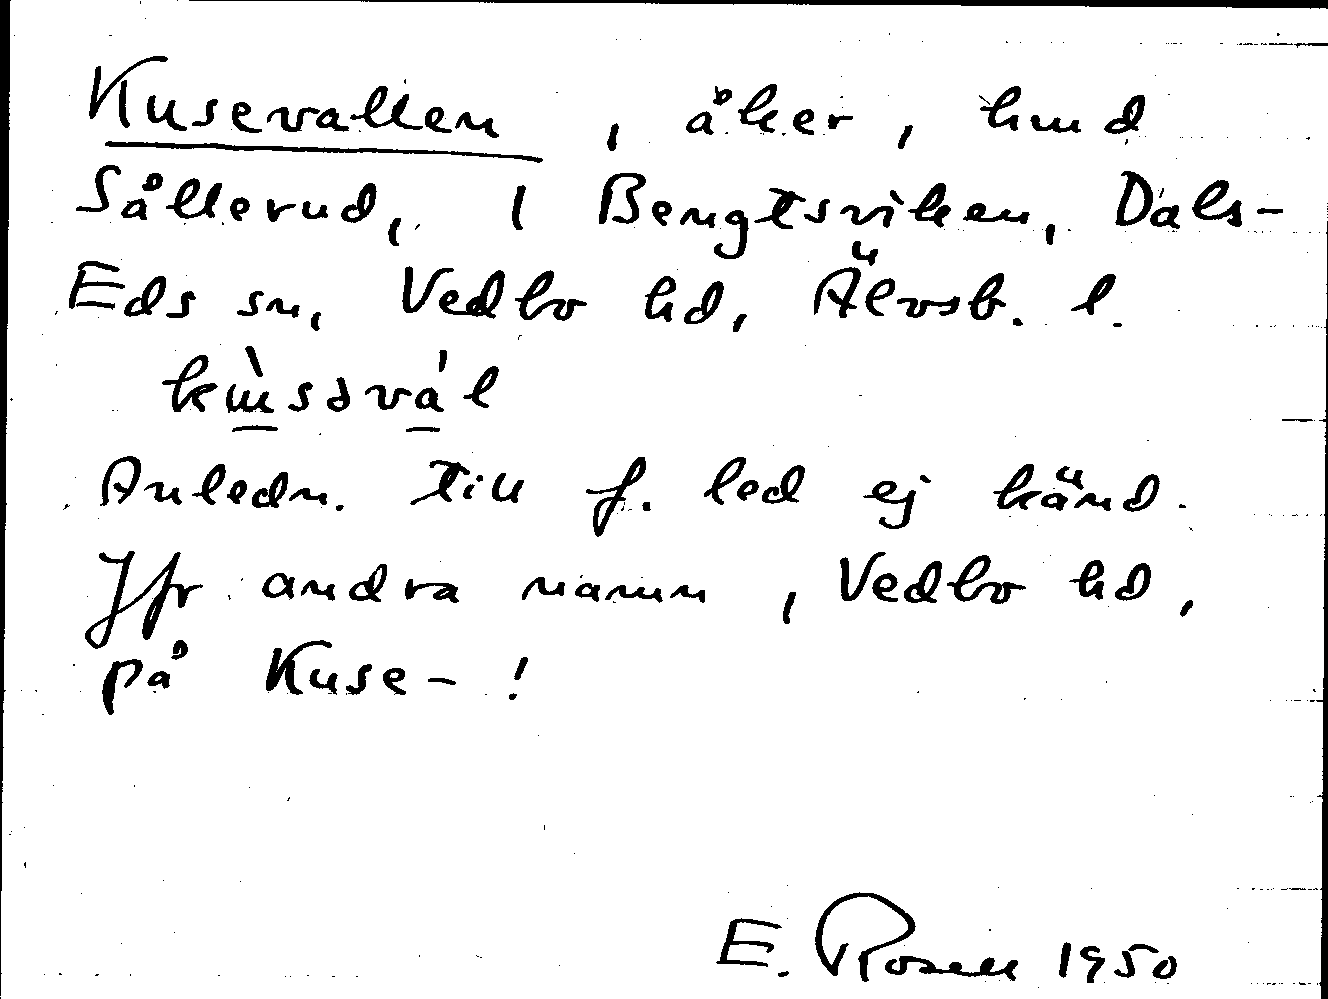 Kusevallen, åker, hmd
Sållerud, 1 Bengtsviken, Dals-
Eds sn, Vedbo hd, Älvsb. l.
Anledn. till f. led ej känd.
Jfr andra namn, Vedbo hd,
på Kuse-!
E. Rosell 1950